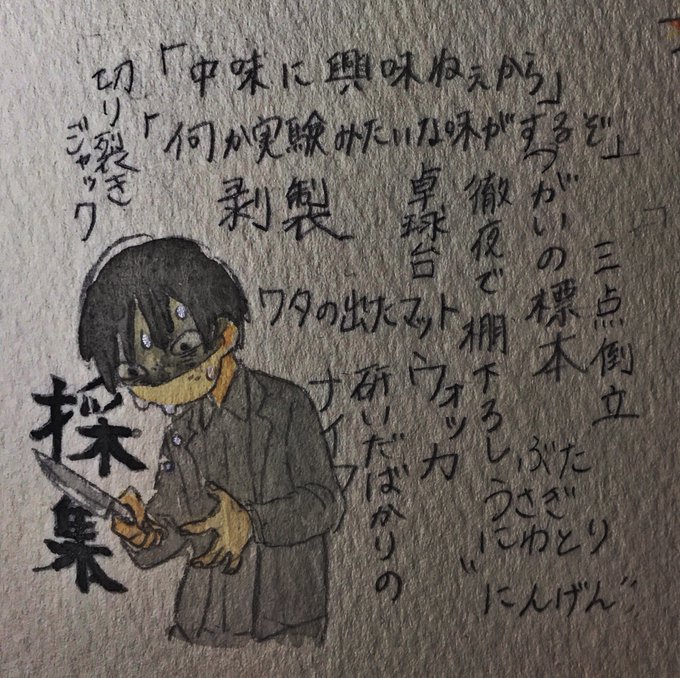 「中味に興味ねぇから」
「何か実験みたいな味がするぞ」
切り裂き
ジャック
剥製
卓球台
徹夜で棚下ろし
つがいの標本
三点倒立
ワタの出たマット
ウォッカ
研いだばかりの
ナイフ
ぶた
うさぎ
にわとり
"にんげん"
採集